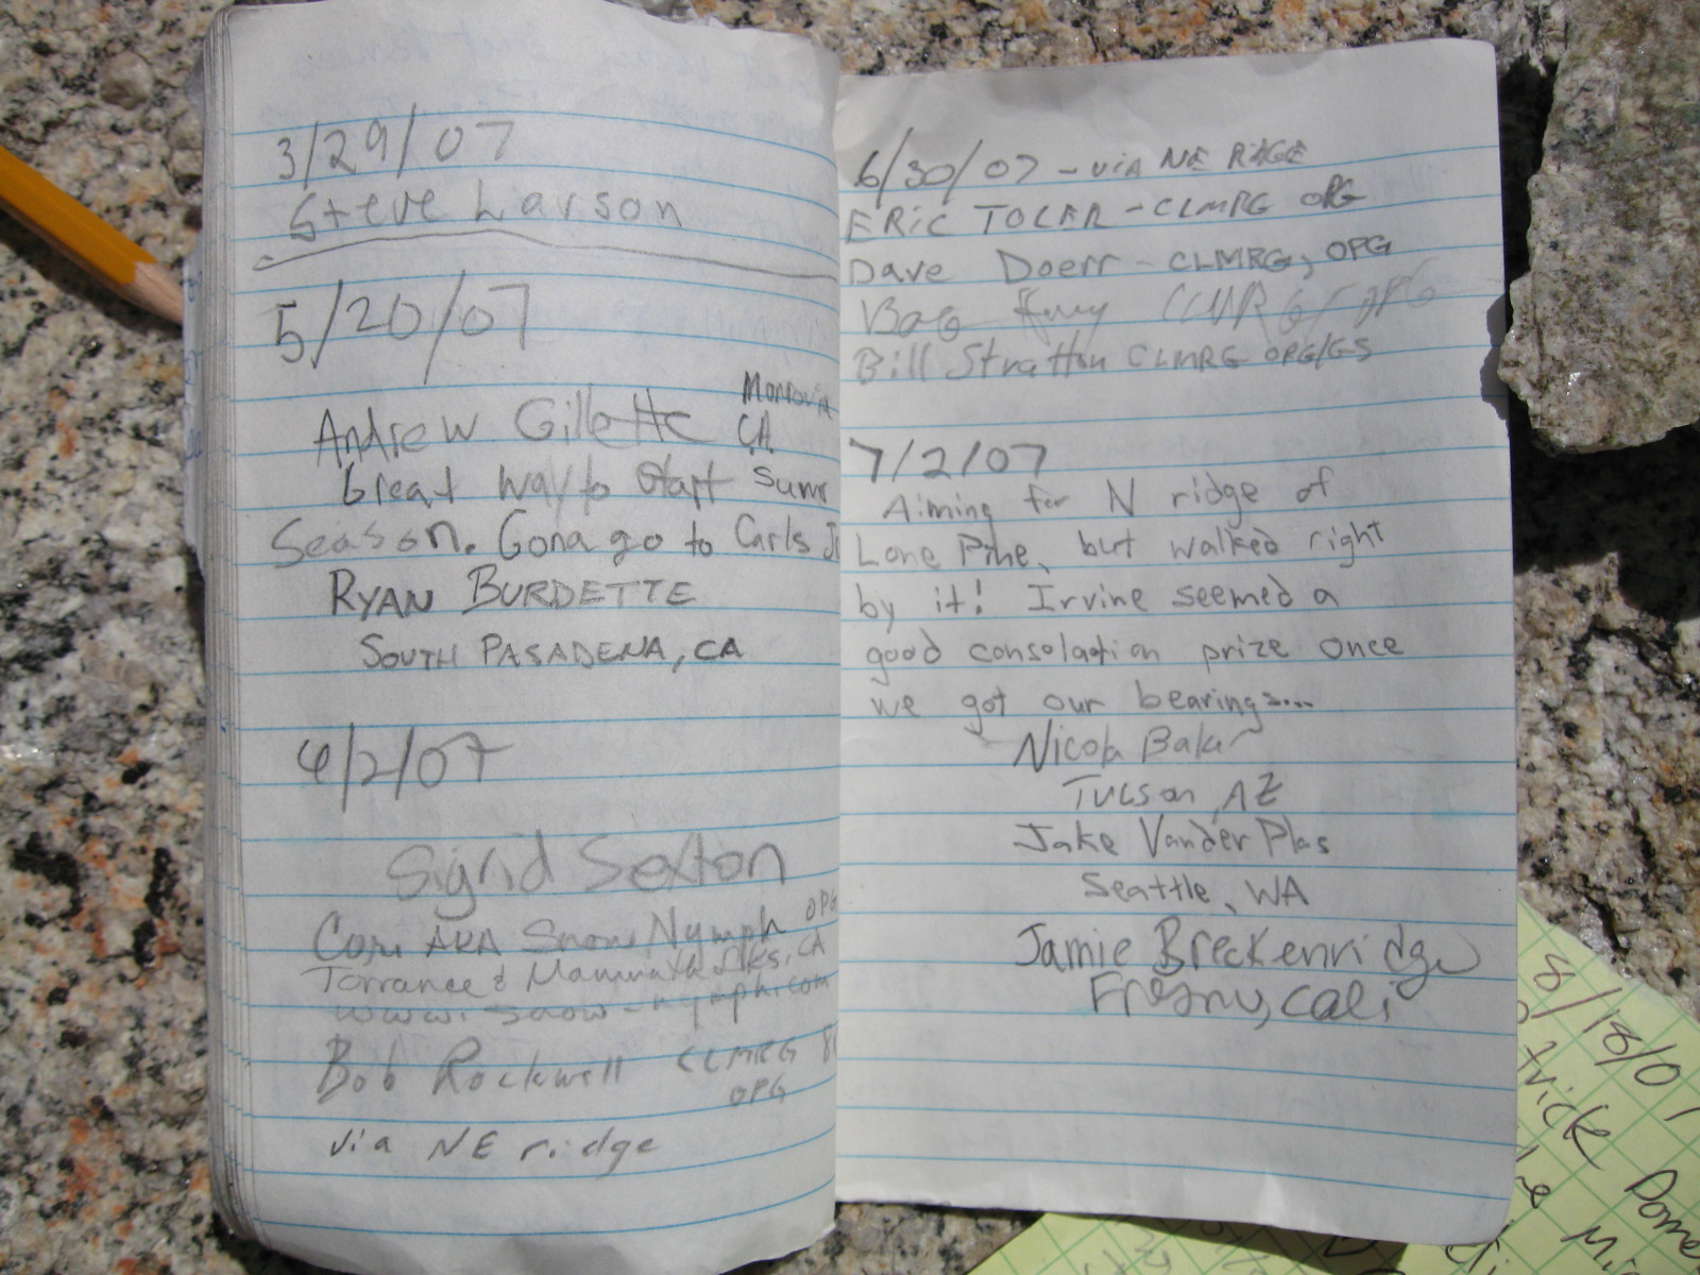 3/29/07
Steve Larson
5/20/07
Andrew Gillette Monrovia
CA
Great way to Start Summ
Season. Gona go to Carls J
RYAN BURDETTE
SOUTH PASADENA, CA
6/2/07
Sigrid Sexton
Cori AKA Snow Nymph OPG
Torrance & Mammoth Lks, CA
www.snow-nymph.com
Bob Rockwell CLMRG
OPG
via NE ridge
6/30/07 - VIA NE RIDGE
ERIC TOLER - CLMRG OPG
Dave Doerr - CLMRG, OPG
CLMRG / OPG
Bill Stratton CLMRG OPG/GS
7/2/07
Aiming for N ridge of
Lone Pine, but walked right
by it! Irvine seemed a
good consolation prize once
we got our bearings...
Nicola Baker
Tucson, AZ
Jake VanderPlas
Seattle, WA
Jamie Breckenridge
Fresno, Cali
8/18/07
trick
Dome